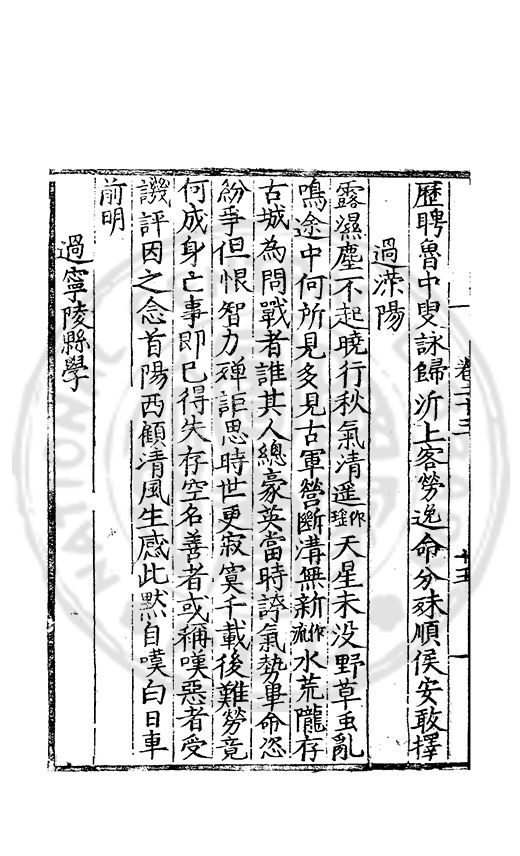 卷二十三
十五
歷聘魯中叟詠歸沂上客勞逸命分殊順俟安敢擇
過滎陽
露濕塵不起曉行秋氣清遥作瑤天星未没野草虫亂
鳴途中何所見多見古軍營斷溝無新作流水荒隴存
古城為問戰者誰其人總豪英當時誇氣勢畢命恣
紛爭但恨智力殫詎思時世更寂寞千載後難勞竟
何成身亡事即已得失存空名善者或稱嘆惡者受
譏評因之念首陽西顧清風生感此默自嘆白日車
前明
過寧陵縣學